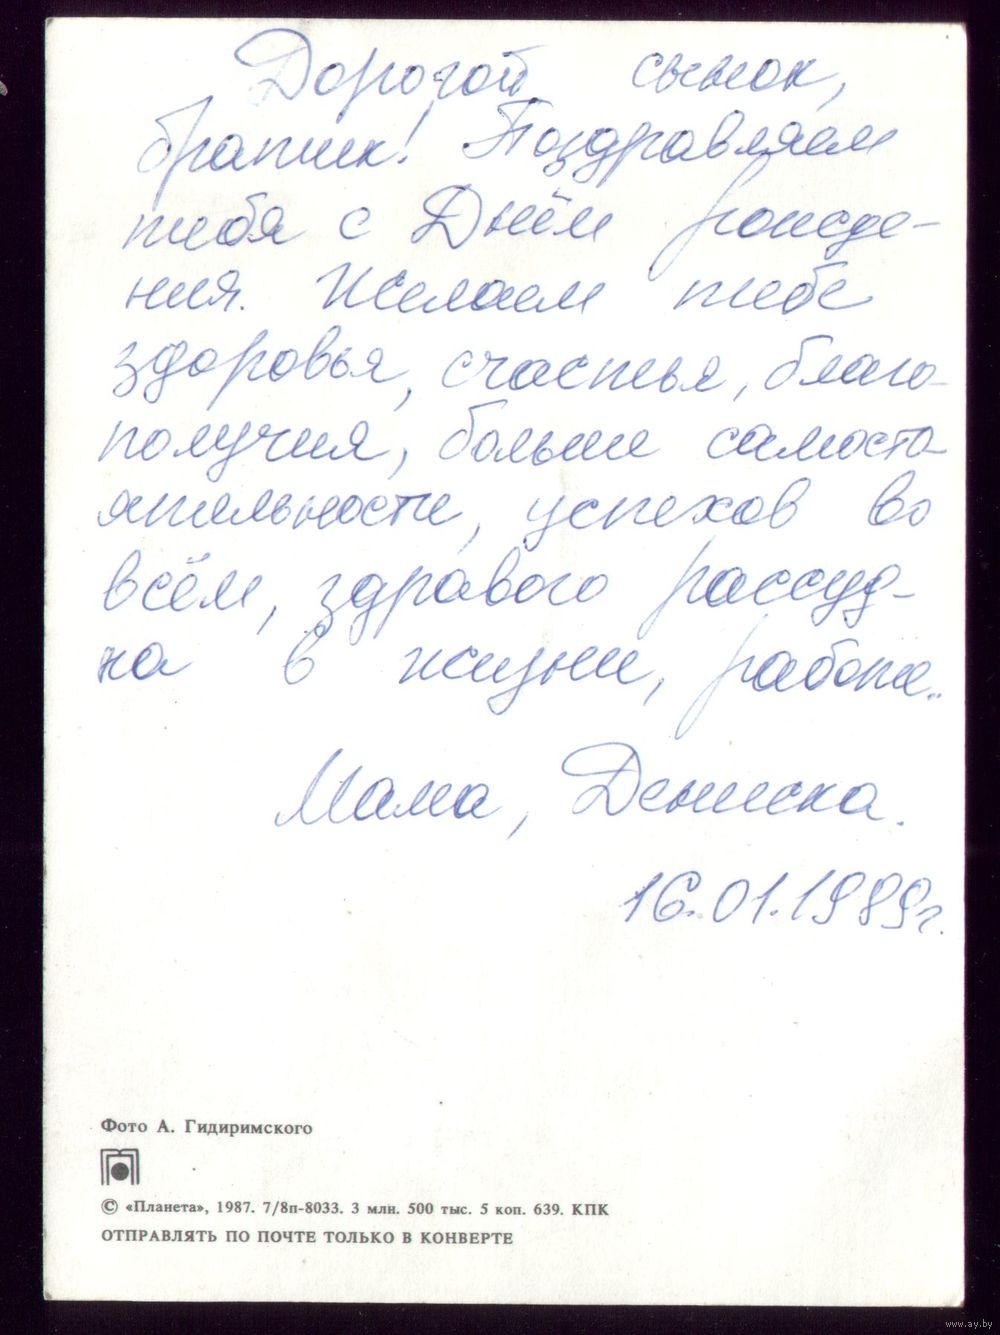 Дорогой сынок,
братик! Поздравляем
тебя с Днём рожде-
ния. Желаем тебе
здоровья, счастья, благо-
получия, больше самосто-
ятельности, успехов во
всём, здравого рассуд-
ка в жизни, работе..
Мама, Дениска.
16.01.1989г.
Фото А. Гидиримского
© «Планета», 1987. 7/8п-8033. 3 млн. 500 тыс. 5 коп. 639. КПК
ОТПРАВЛЯТЬ ПО ПОЧТЕ ТОЛЬКО В КОНВЕРТЕ
www.ay.by